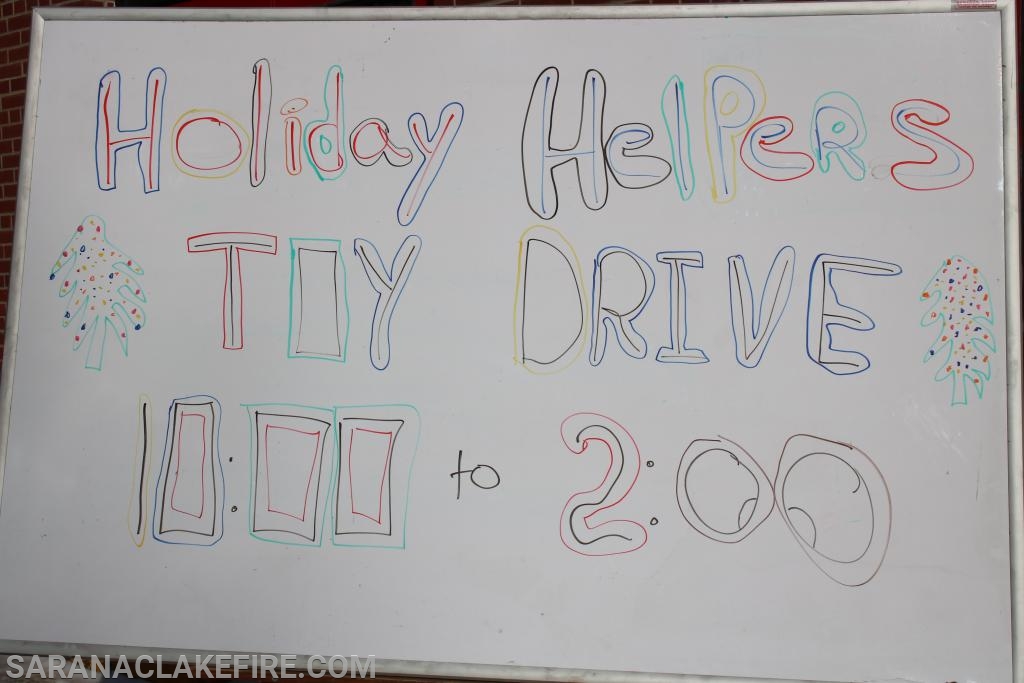 Holiday Helpers
TOY DRIVE
10:00 to 2:00
SARANACLAKEFIRE.COM